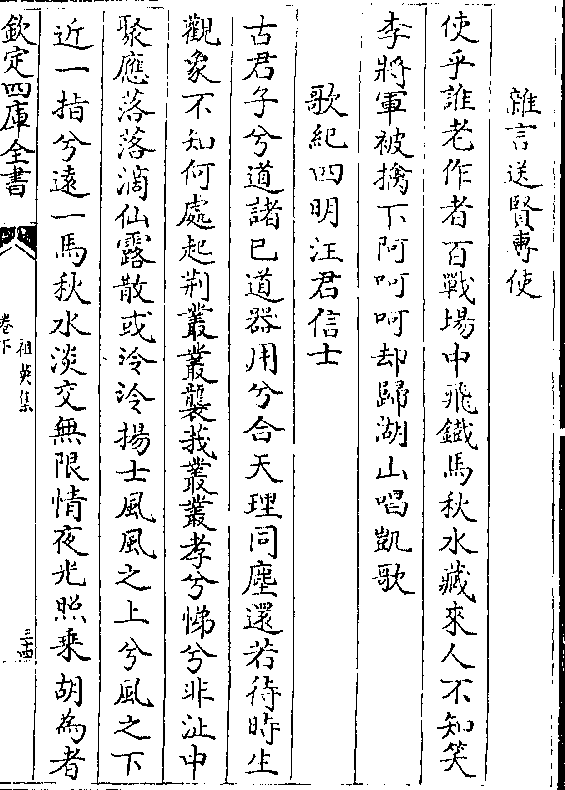 雜言送賢專使
使乎誰老作者百戰場中飛鐵馬秋水藏來人不知笑
李將軍被擒下阿呵呵却歸湖山唱凱歌
歌紀四明汪君信士
古君子兮道諸已道器用兮合天理同塵還若待時生
觀象不知何處起荆叢叢襲莪叢叢孝兮悌兮非沚中
聚應落落滴仙露散或泠泠揚士風風之上兮風之下
近一指兮遠一馬秋水淡交無限情夜光照乗胡為者
欽定四庫全書
祖英集
卷下
三十四